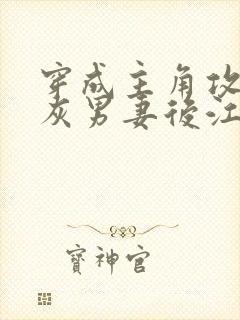 穿成主角攻
灰男妻後江
寶神官